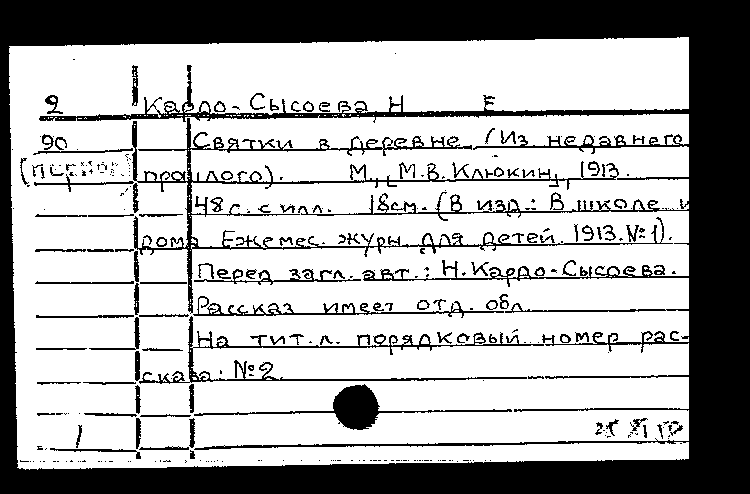 2 Кардо-Сысоева, Н Е
90 Святки в деревне. (Из недавнего
прошлого). М., [М.В. Клюкин], 1913.
48 с. с илл. 18см. (В изд.: В школе и
дома. Ежемес. журн. для детей. 1913. №1).
Перед загл. авт.: Н. Кардо-Сысоева.
Рассказ имеет отд. обл.
На тит. л. порядковый номер рас-
сказа: №2.
1